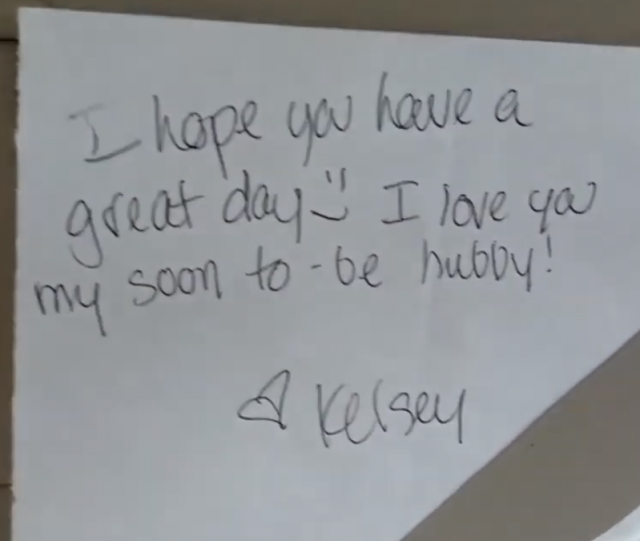 I hope you have a
great day :) I love you
my soon to-be hubby!
♡ Kelsey